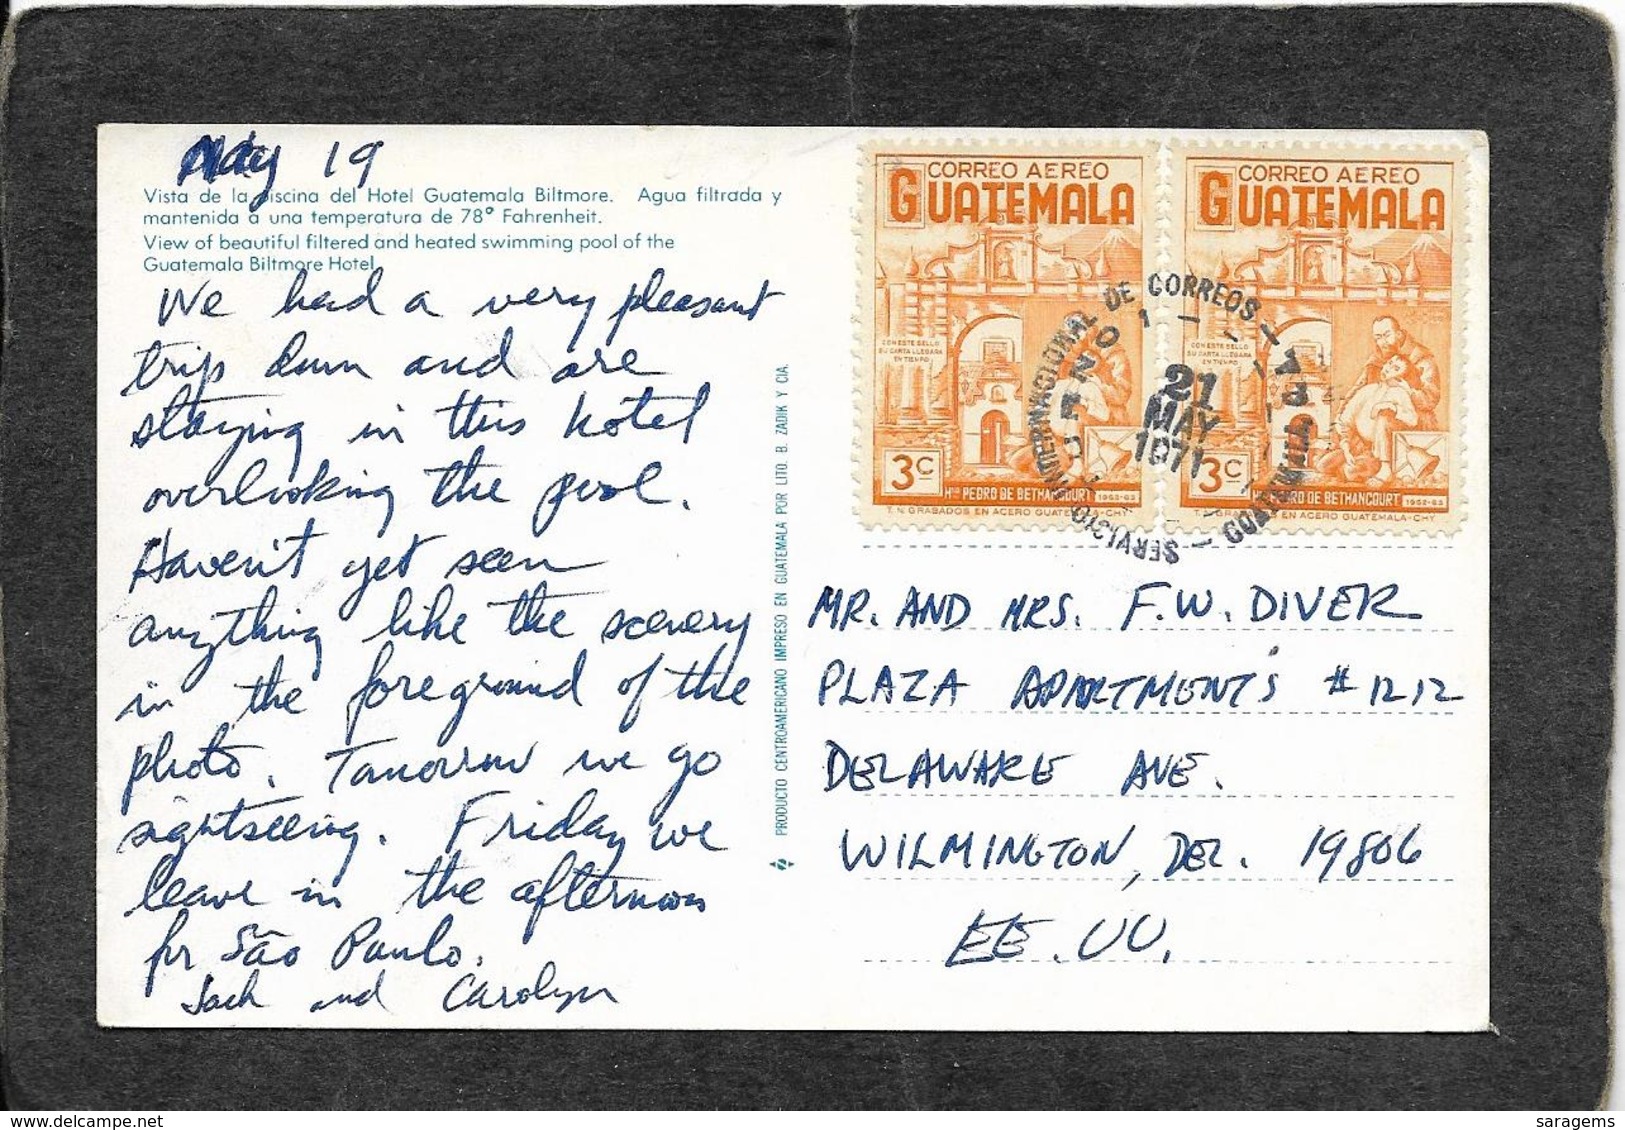 May 19
Vista de la piscina del Hotel Guatemala Biltmore. Agua filtrada y
mantenida a una temperatura de 78° Fahrenheit.
View of beautiful filtered and heated swimming pool of the
Guatemala Biltmore Hotel
We had a very pleasant
trip down and are
staying in this hotel
overlooking the pool.
Haven't yet seen
anything like the scenery
in the foreground of the
photo. Tomorrow we go
sightseeing. Friday we
leave in the afternoon
for São Paulo.
Jack and Carolyn
PRODUCTO CENTROAMERICANO IMPRESO EN GUATEMALA POR LITO. B. ZADIK Y CIA.
CORREO AEREO
GUATEMALA
CON ESTE SELLO
SU CARTA LLEGARA
EN TIEMPO
3c
HNO PEDRO DE BETHANCOURT 1962-63
T. N. GRABADOS EN ACERO GUATEMALA-CHY
CORREO AEREO
GUATEMALA
CON ESTE SELLO
SU CARTA LLEGARA
EN TIEMPO
3c
PEDRO DE BETHANCOURT 1962-63
GRABADOS EN ACERO GUATEMALA-CHY
SERVICIO INTERNACIONAL DE CORREOS
GUATEMALA
21
MAY
1971
MR. AND MRS. F.W. DIVER
PLAZA APARTMENTS #1212
DELAWARE AVE.
WILMINGTON, DEL. 19806
EE.UU.
saragems